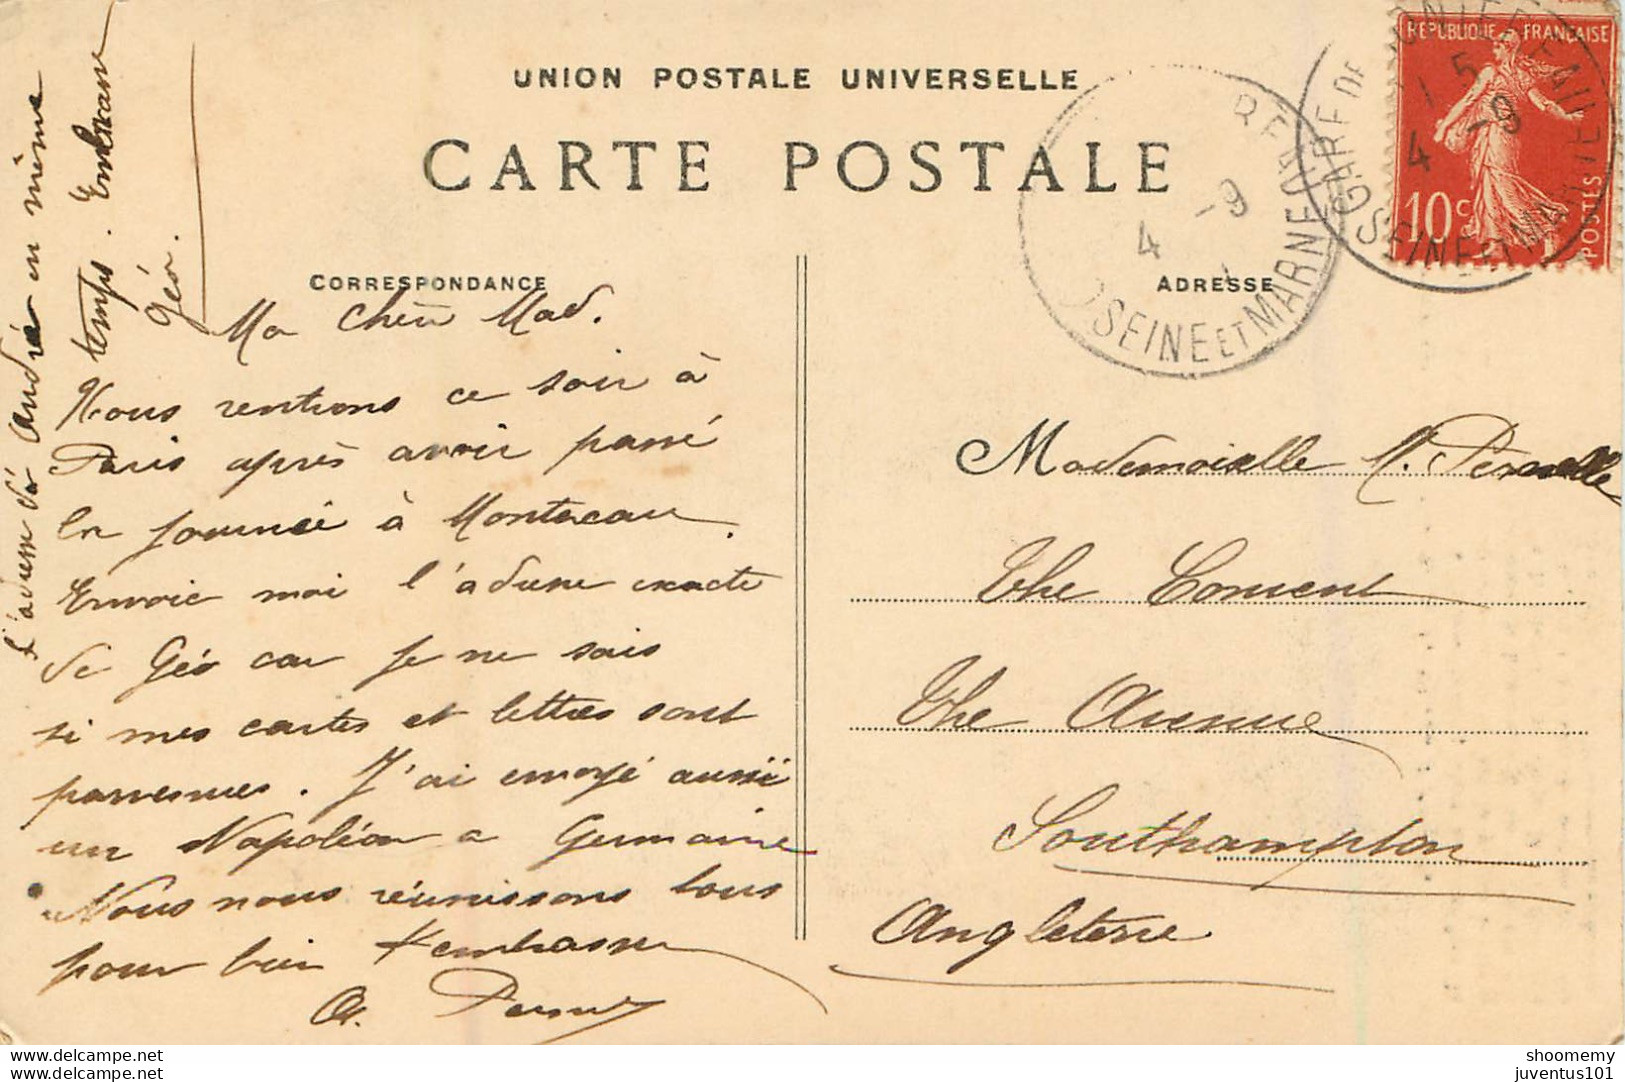 UNION POSTALE UNIVERSELLE
CARTE POSTALE
CORRESPONDANCE
ADRESSE
REPUBLIQUE FRANÇAISE
10c
POSTES
GARE DE
SEINE ET MARNE
15
4 -9
4 -9
SEINE ET MARNE
Ma chère Mad.
Nous rentrons ce soir à
Paris après avoir passé
la journée à Montereau
Envoie moi l'adresse exacte
de Géo car je ne sais
si mes cartes et lettres sont
parvenues. J'ai envoyé aussi
un Napoléon a Germaine
Nous nous réunissons tous
pour bien t'embrasser
L'adresse d'André en même
temps. Embrasse
Géo.
Mademoiselle M.
The Convent
The Avenue
Southampton
Angleterre
www.delcampe.net
www.delcampe.net
shoomemy
juventus101